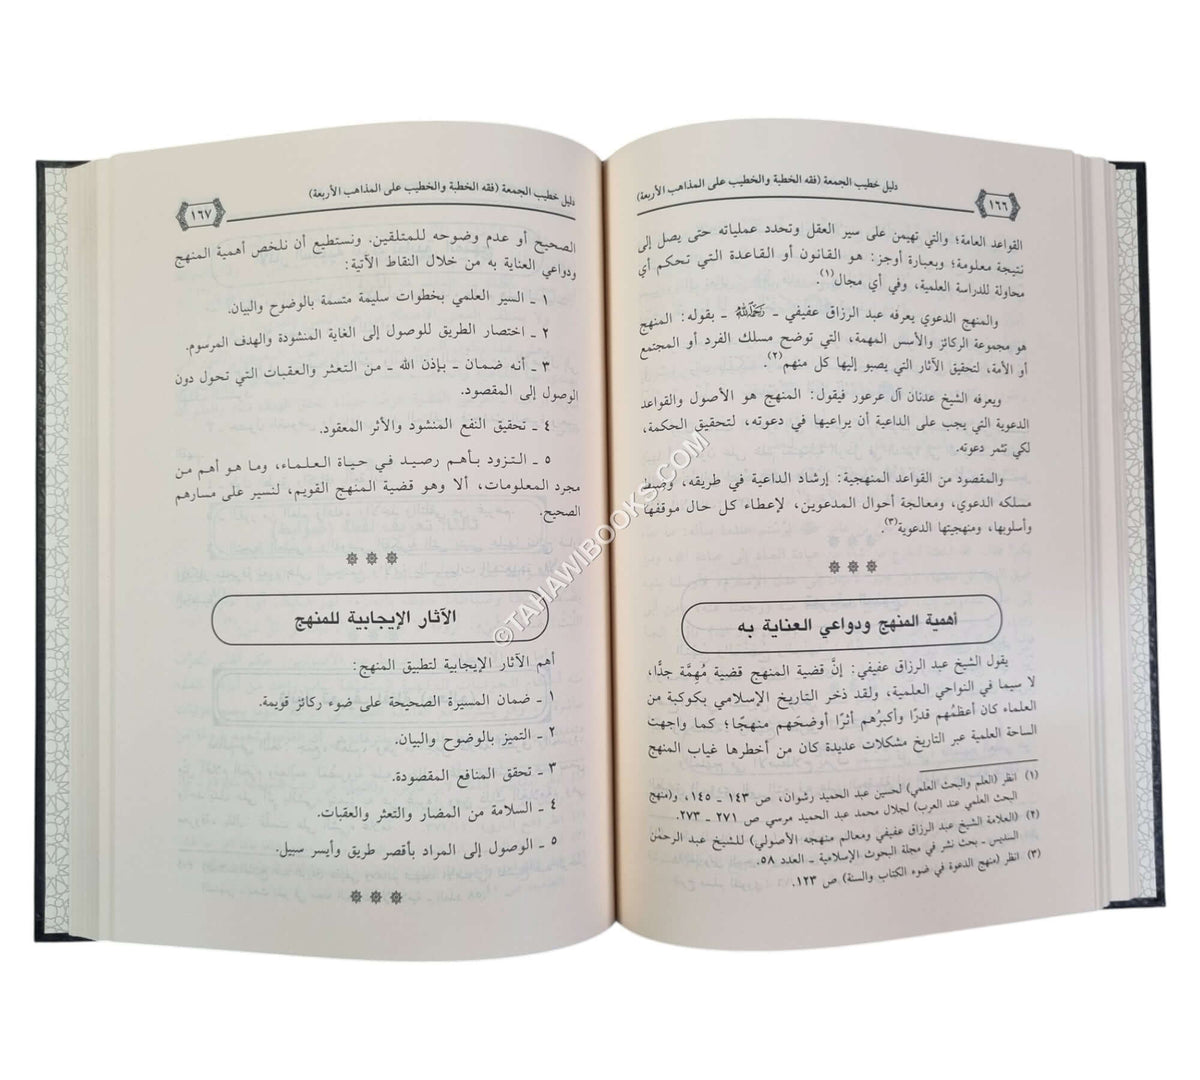 دليل خطيب الجمعة (فقه الخطبة والخطيب على المذاهب الأربعة)
١٦٦
القواعد العامة؛ والتي تهيمن على سير العقل وتحدد عملياته حتى يصل إلى
نتيجة معلومة؛ وبعبارة أوجز: هو القانون أو القاعدة التي تحكم أي
محاولة للدراسة العلمية، وفي أي مجال(١).
والمنهج الدعوي يعرفه عبد الرزاق عفيفي ـ رحمه الله ـ بقوله: المنهج
هو مجموعة الركائز والأسس المهمة، التي توضح مسلك الفرد أو المجتمع
أو الأمة، لتحقيق الآثار التي يصبو إليها كل منهم(٢).
ويعرفه الشيخ عدنان آل عرعور فيقول: المنهج هو الأصول والقواعد
الدعوية التي يجب على الداعية أن يراعيها في دعوته، لتحقيق الحكمة،
لكي تثمر دعوته.
والمقصود من القواعد المنهجية: إرشاد الداعية في طريقه، وضبط
مسلكه الدعوي، ومعالجة أحوال المدعوين، لإعطاء كل حال موقفها
وأسلوبها، ومنهجيتها الدعوية(٣).
أهمية المنهج ودواعي العناية به
يقول الشيخ عبد الرزاق عفيفي: إنَّ قضية المنهج قضية مُهمَّة جدًّا،
لا سيما في النواحي العلمية، ولقد ذخر التاريخ الإسلامي بكوكبة من
العلماء كان أعظمُهم قدرًا وأكبرُهم أثرًا أوضحَهم منهجًا؛ كما واجهت
الساحة العلمية عبر التاريخ مشكلات عديدة كان من أخطرها غياب المنهج
(١) انظر (العلم والبحث العلمي) لحسين عبد الحميد رشوان، ص ١٤٣ ـ ١٤٥، و(منهج
البحث العلمي عند العرب) لجلال محمد عبد الحميد مرسي ص ٢٧١ ـ ٢٧٣.
(٢) (العلامة الشيخ عبد الرزاق عفيفي ومعالم منهجه الأصولي) للشيخ عبد الرحمٰن
السديس ـ بحث نشر في مجلة البحوث الإسلامية ـ العدد ٥٨.
(٣) انظر (منهج الدعوة في ضوء الكتاب والسنة) ص ١٢٣.
دليل خطيب الجمعة (فقه الخطبة والخطيب على المذاهب الأربعة)
١٦٧
الصحيح أو عدم وضوحه للمتلقين. ونستطيع أن نلخص أهمية المنهج
ودواعي العناية به من خلال النقاط الآتية:
١ ـ السير العلمي بخطوات سليمة متسمة بالوضوح والبيان.
٢ ـ اختصار الطريق للوصول إلى الغاية المنشودة والهدف المرسوم.
٣ ـ أنه ضمان ـ بإذن الله ـ من التعثر والعقبات التي تحول دون
الوصول إلى المقصود.
٤ ـ تحقيق النفع المنشود والأثر المعقود.
٥ ـ التزود بأهم رصيد في حياة العلماء، وما هو أهم من
مجرد المعلومات، ألا وهو قضية المنهج القويم، لنسير على مسارهم
الصحيح.
الآثار الإيجابية للمنهج
أهم الآثار الإيجابية لتطبيق المنهج:
١ ـ ضمان المسيرة الصحيحة على ضوء ركائز قويمة.
٢ ـ التميز بالوضوح والبيان.
٣ ـ تحقق المنافع المقصودة.
٤ ـ السلامة من المضار والتعثر والعقبات.
٥ ـ الوصول إلى المراد بأقصر طريق وأيسر سبيل.
©TAHAWIBOOKS.COM